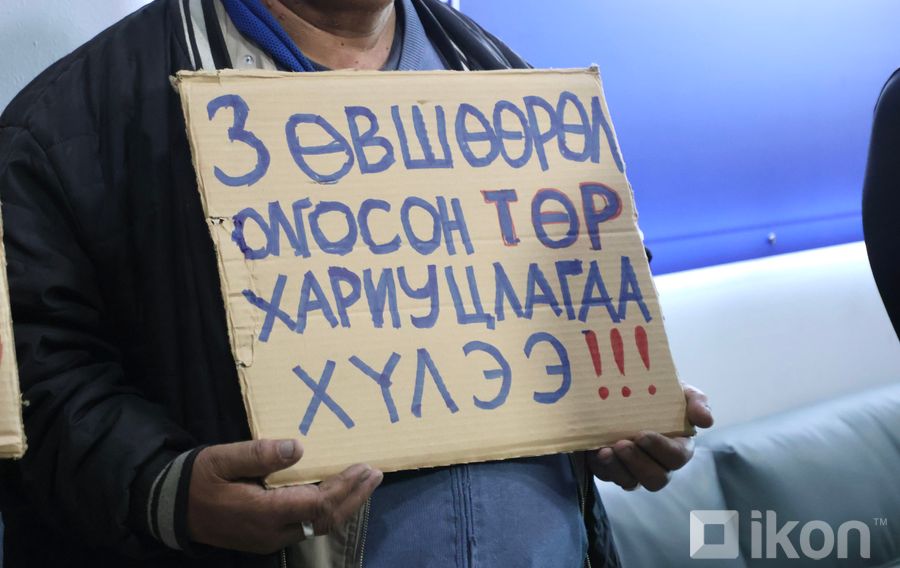 3 ӨВШӨӨРӨЛ
ОЛГОСОН ТӨР
ХАРИУЦЛАГАА
ХҮЛЭЭ!!!
ikon™